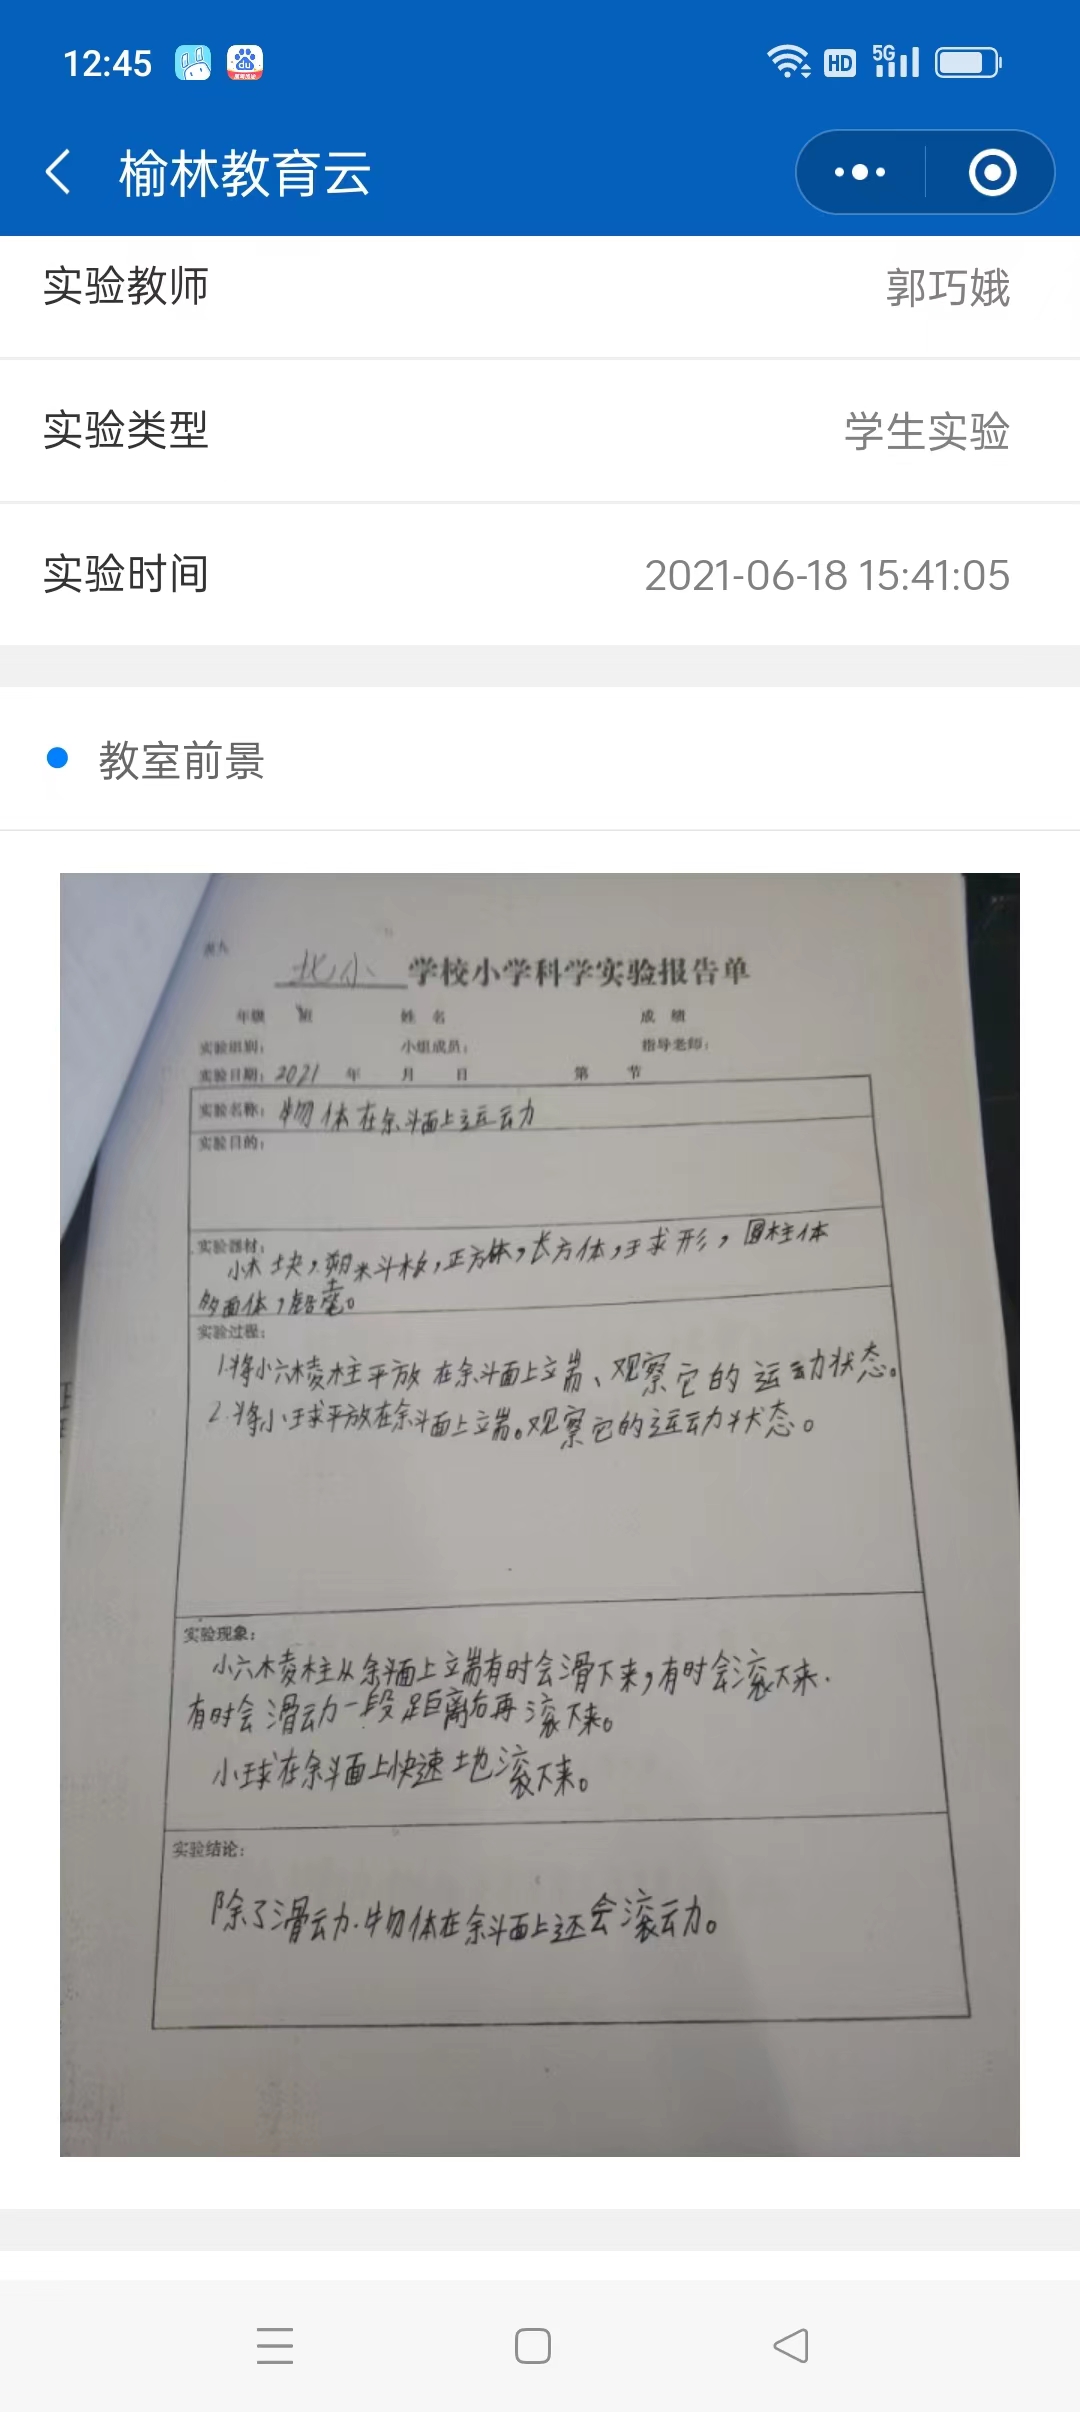 12:45
HD 5G
榆林教育云
实验教师 郭巧娥
实验类型 学生实验
实验时间 2021-06-18 15:41:05
教室前景
北小 学校小学科学实验报告单
年级 班 姓 名 成 绩
实验组别: 小组成员: 指导老师:
实验日期: 2021 年 月 日 第 节
实验名称: 物体在斜面上运动
实验目的:
实验器材:
小木块,斜板,正方体,长方体,球形,圆柱体
多面体,铅笔。
实验过程:
1.将小六棱柱平放在斜面上端、观察它的运动状态。
2.将小球平放在斜面上端。观察它的运动状态。
实验现象:
小六棱柱从斜面上端有时会滑下来,有时会滚下来.
有时会滑动一段距离后再滚下来。
小球在斜面上快速地滚下来。
实验结论:
除了滑动.物体在斜面上还会滚动。